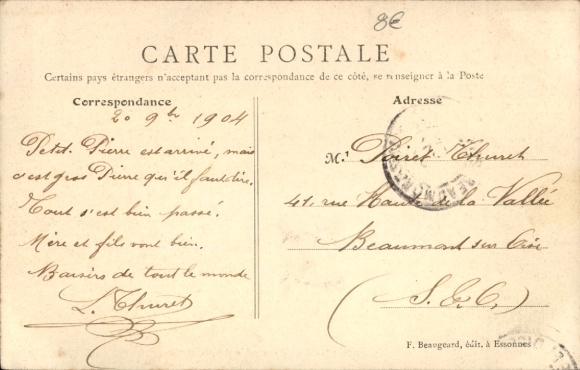 8€
CARTE POSTALE
Certains pays étrangers n'acceptant pas la correspondance de ce côté, se renseigner à la Poste
Correspondance
Adresse
20 9bre 1904
Petit Pierre est arrivé, mais
c'est gros Pierre qu'il faut dire.
Tout s'est bien passé.
Mère et fils vont bien.
Baisers de tout le monde
L. Thuret
M.r Poiret Thuret
41, rue Haute de la Vallée
Beaumont sur Oise
(S. & O.)
F. Beaugeard, édit. à Essonnes